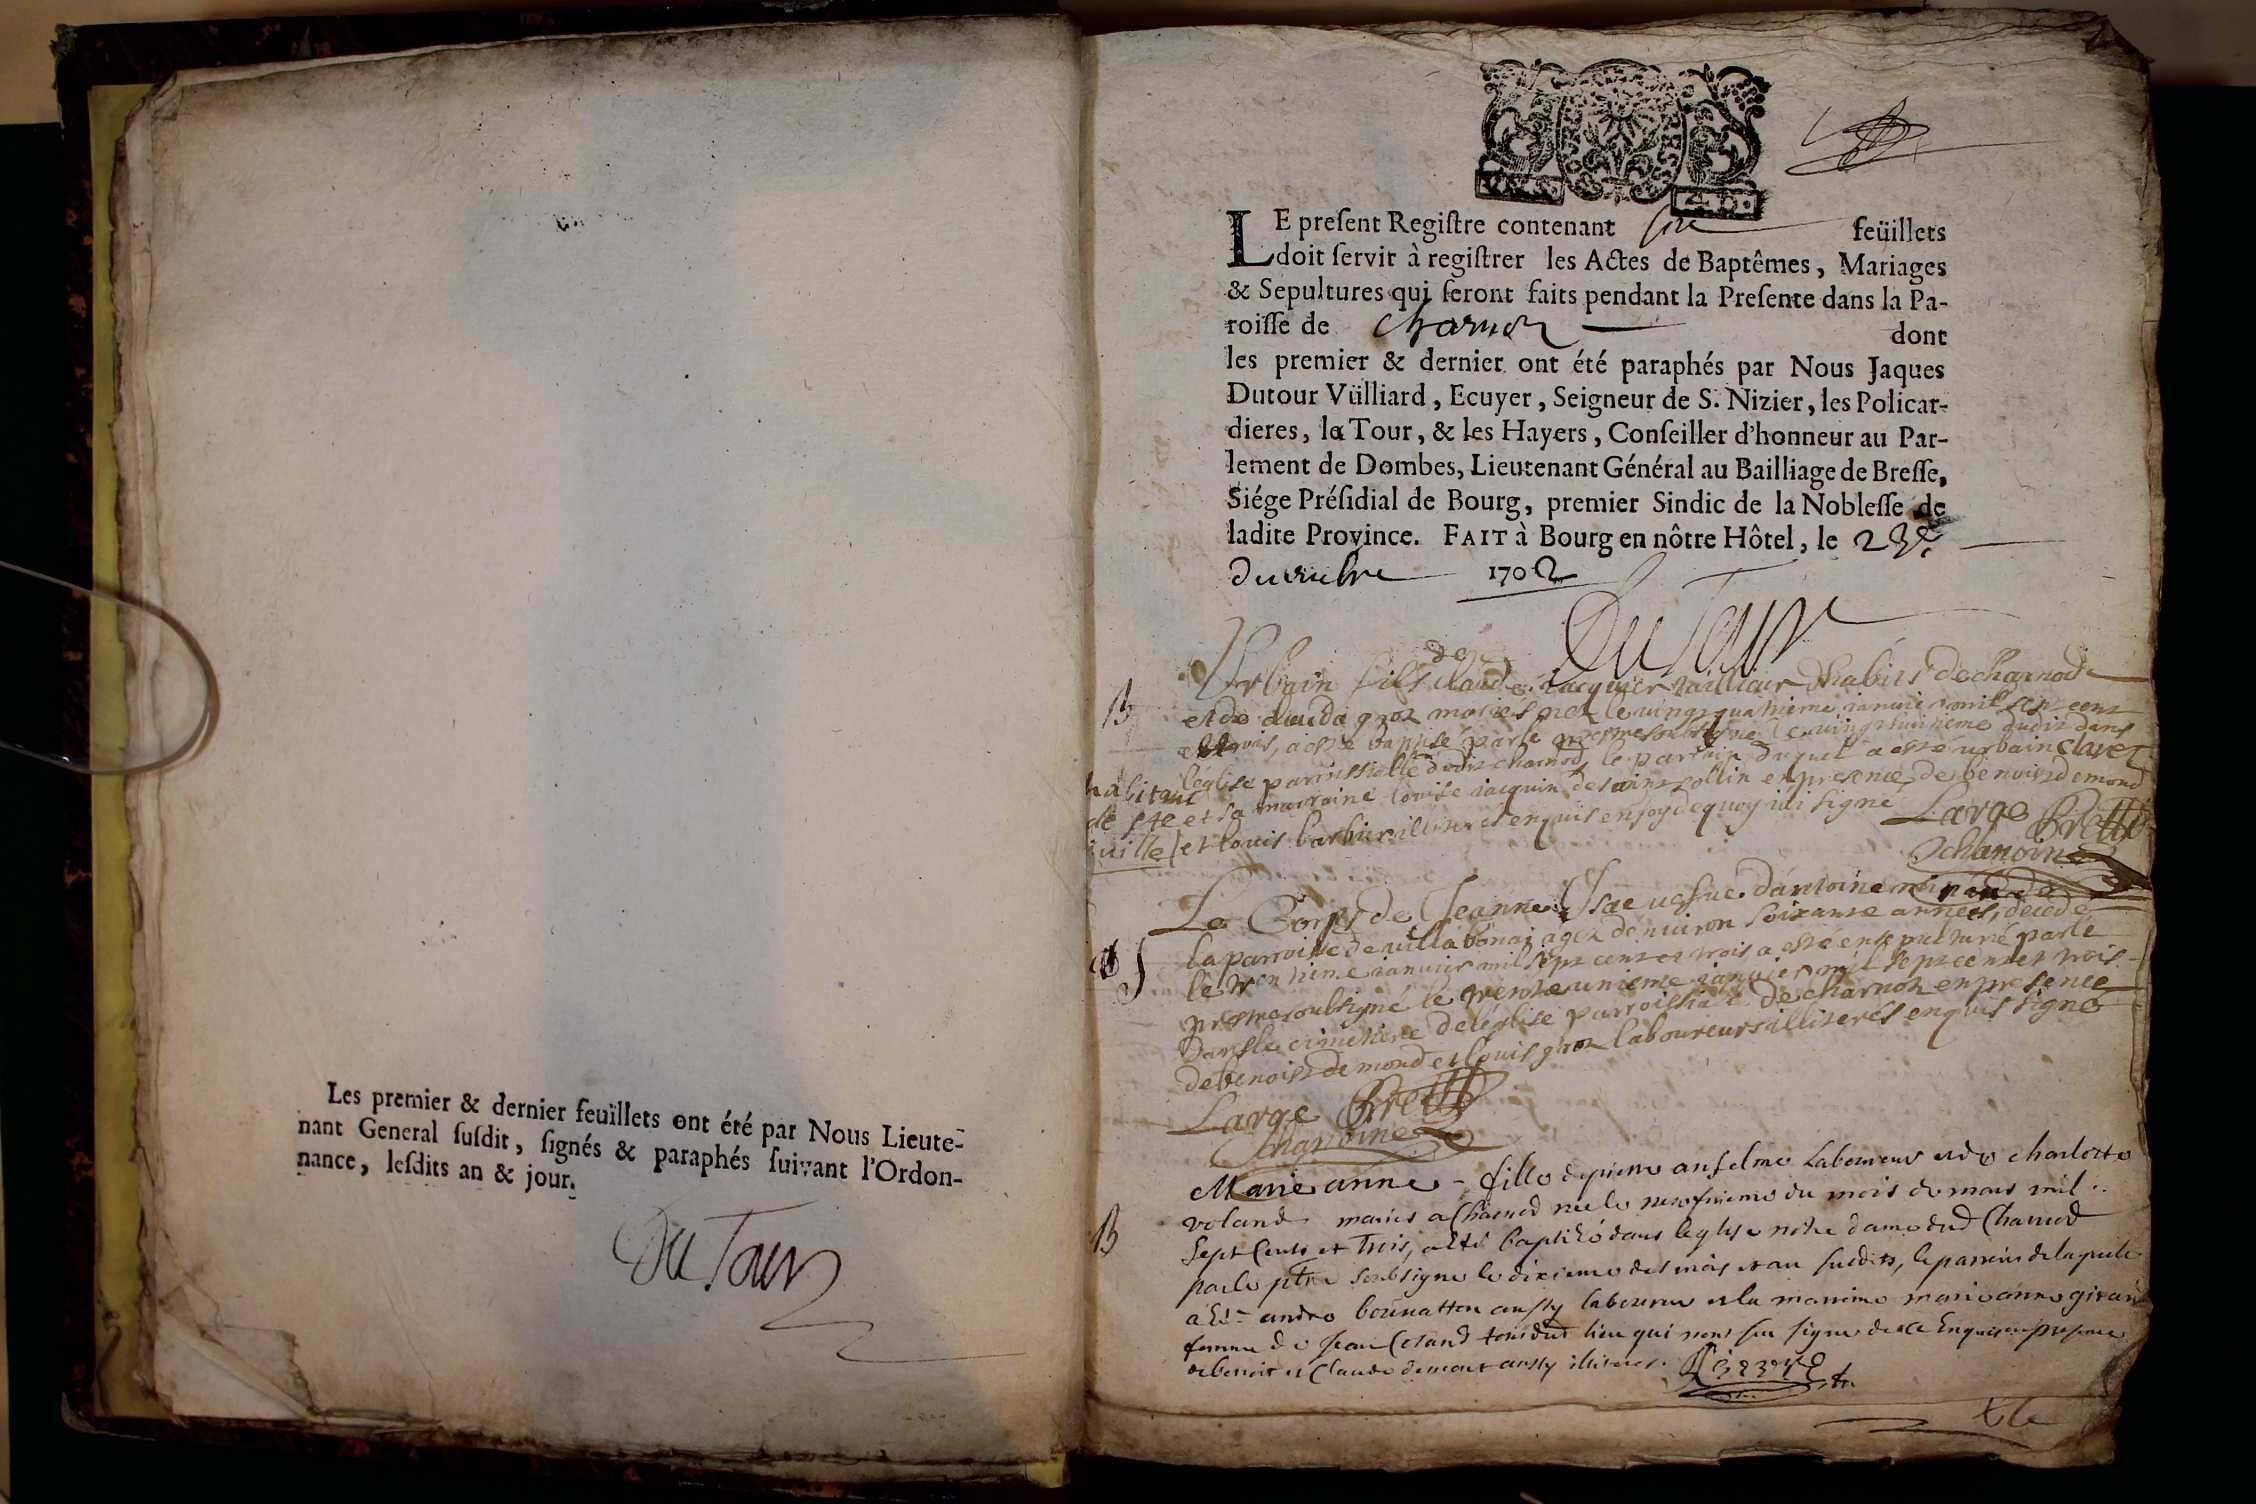 Les premier & dernier feüillets ont été par Nous Lieute-
nant General susdit, signés & paraphés suivant l'Ordon-
nance, lesdits an & jour.
DuTour
LE present Registre contenant six feüillets
doit servir à registrer les Actes de Baptêmes, Mariages
& Sepultures qui seront faits pendant la Presente dans la Pa-
roisse de Charnoz dont
les premier & dernier ont été paraphés par Nous Jaques
Dutour Vülliard, Ecuyer, Seigneur de S. Nizier, les Policar-
dieres, la Tour, & les Hayers, Conseiller d'honneur au Par-
lement de Dombes, Lieutenant Général au Bailliage de Bresse,
Siége Présidial de Bourg, premier Sindic de la Noblesse de
ladite Province. FAIT à Bourg en nôtre Hôtel, le 23e
1702
DuTour
B
Urbain fils de Claude Jacquier tailleur de Charnod
et de Clauda groz mariés nez le vingt quatrieme ianvier mil sept cent
et trois, a esté baptisé par le soubsigné le vingt dudit dans
l'eglise parrissialle dudit charnod, le parrain duquel a esté urbain claret
habitant
de ste et sa marraine louise iacquin de saint collin en presence de benoist demond
iuille et louis barbier illiteres enquis ensoy dequoy iai signé
Large Brett
chanoine
S
Le Corps de Jeanne Isac vefue dantoine de
la parroisse de uillabonai agez denuiron soixante années, decedé
le trentieme ianuier mil sept cent et trois a esté ensepulturé par le
prestre soubsigné le trente unieme ianuier mil sept cent et trois
dans le cimetiere de leglise parroissiale de charnoz en presence
de benoist demond et louis groz laboureurs illiterés enquis signé
Large Brett
chanoine
B
Marie anne - fille de pierre anselme Laboureur et de charlotte
voland mariés a Charnod née le neufuieme du mois de mars mil
sept Cents et Trois, a esté baptizé dans leglise notre dame dud Charnod
par le ptre soubsigne le dixieme des mois et an susdits, le parrain de laquele
a été andre bounatton aussy laboureur et la marreine marie anne girard
femme de Jean tous dud lieu qui nont sceu signer de ce Enquis en presence
de benoit et Claude demont aussy illiteres.